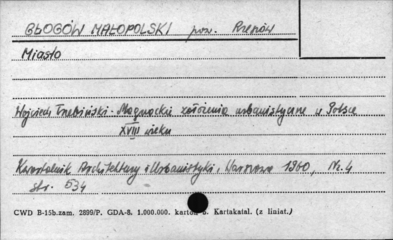 GŁOGÓW MAŁOPOLSKI pow. Rzeszów
Miasto
Wojciech Trzebiński - Magnackie założenia urbanistyczne w Polsce
XVIII wieku
Kwartalnik Architektury i Urbanistyki, Warszawa 1960, Nr. 4
str. 534
CWD B-15b.zam. 2899/P. GDA-8. 1.000.000. karton 8. Kartakatal. (z liniat.)